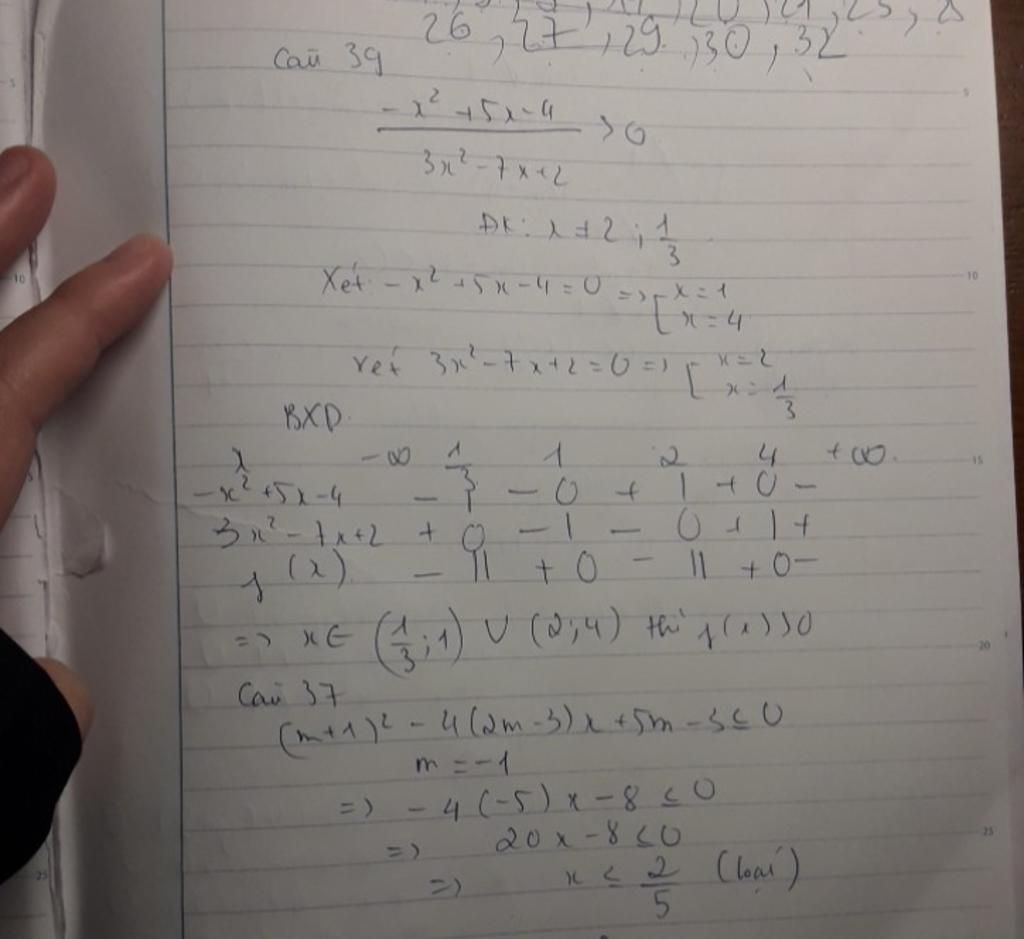 26, 27, 29, 30, 32
Câu 39
(-x² + 5x - 4)/(3x² - 7x + 2) > 0
ĐK: x ≠ 2 ; 1/3
Xét: -x² + 5x - 4 = 0 => [ x = 1
x = 4
xét 3x² - 7x + 2 = 0 => [ x = 2
x = 1/3
BXD
x -∞ 1/3 1 2 4 +∞
-x² + 5x - 4 - | - 0 + | + 0 -
3x² - 7x + 2 + 0 - | - 0 + | +
f(x) - || + 0 - || + 0 -
=> x ∈ (1/3 ; 1) ∪ (2;4) thì f(x) > 0
Câu 37
(m+1)² - 4(2m-3)x + 5m - 3 ≤ 0
m = -1
=> -4(-5)x - 8 ≤ 0
=> 20x - 8 ≤ 0
=> x ≤ 2/5 (loại)